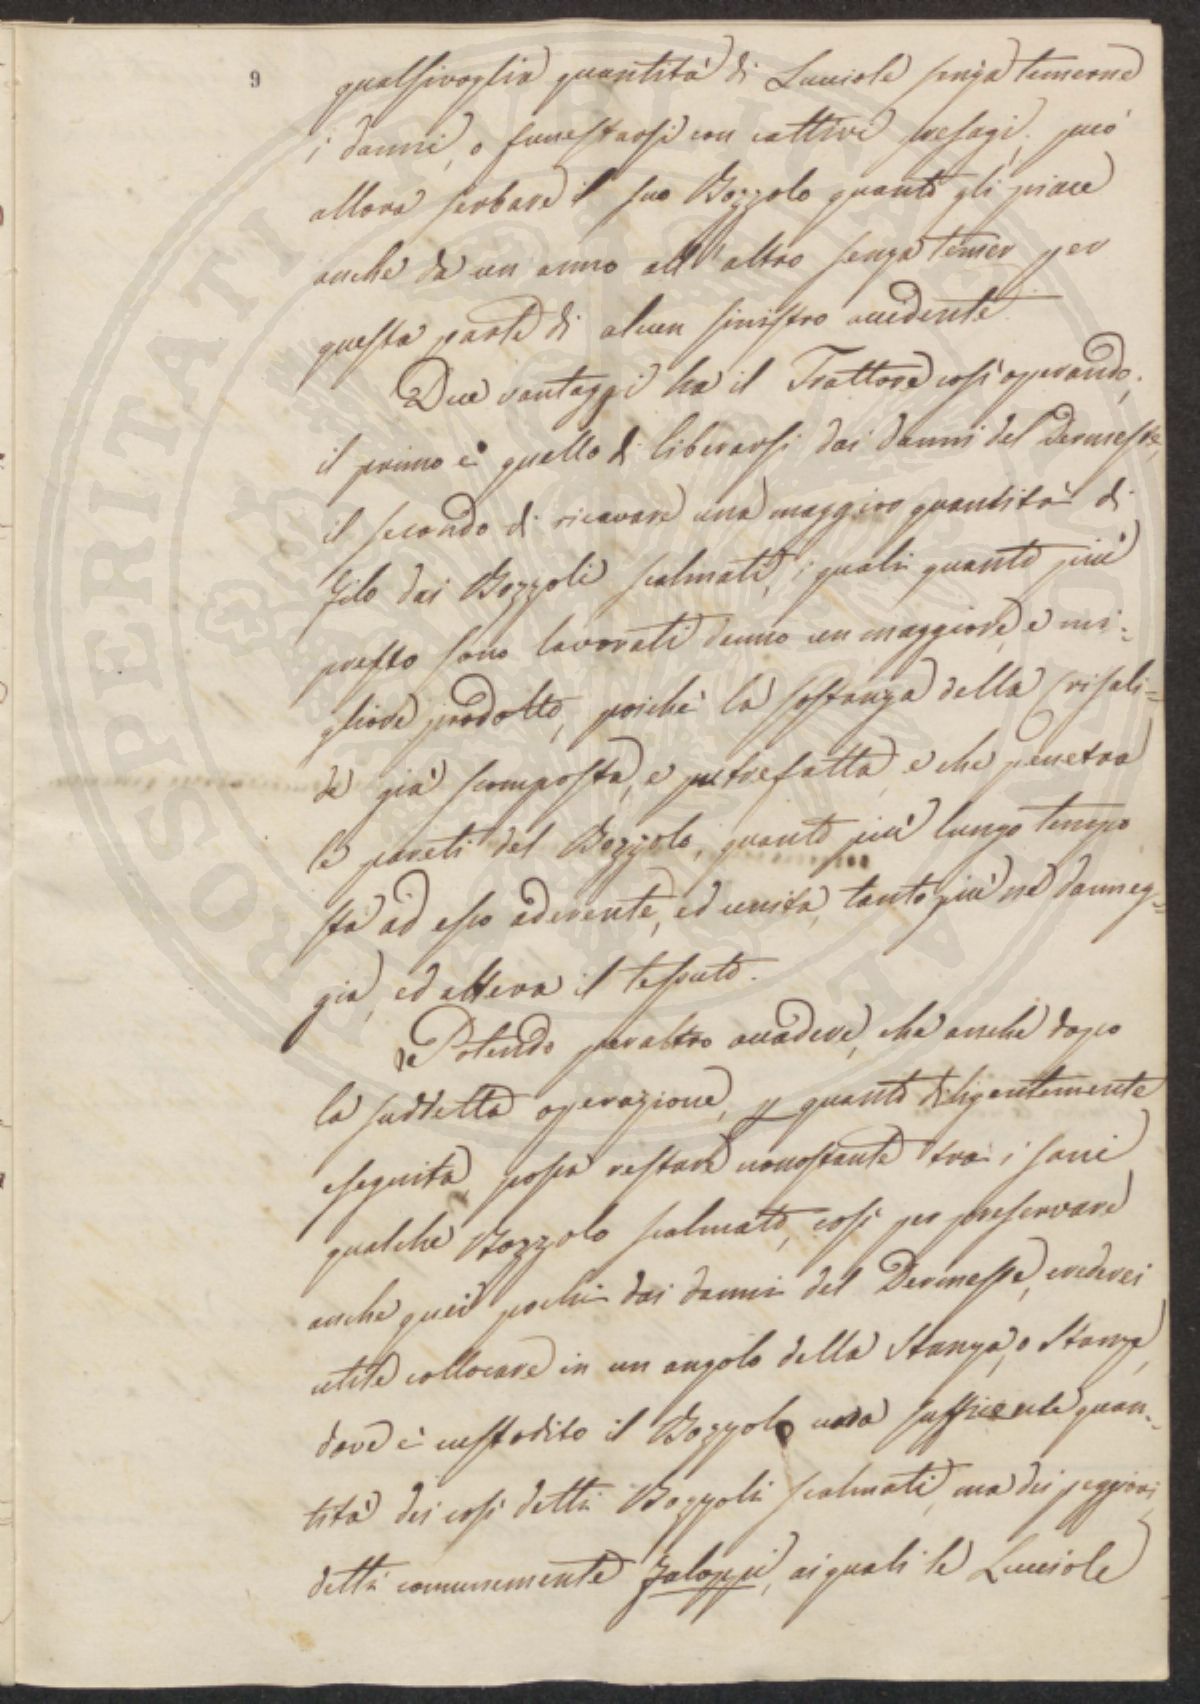 9
qualsivoglia quantità di Lucciole senza temerne
i danni, o funestarsi con cattivi presagi; può
allora serbare il suo Bozzolo quanto gli piace
anche da un anno all'altro senza temer per
questa parte di alcun sinistro accidente.
Due vantaggi ha il Trattore così operando;
il primo è quello di liberarsi dai danni del Dermeste,
il secondo di ricavare una maggior quantità di
filo dai Bozzoli scalmati, i quali quanto più
presto sono lavorati danno un maggiore, e mi=
gliore prodotto, poichè la sostanza della Crisali=
de già scomposta, e putrefatta, e che penetra
le pareti del Bozzolo, quanto più lungo tempo
sta ad esso aderente, ed unita, tanto più ne danneg=
gia, ed altera il tessuto.
Potendo peraltro accadere, che anche dopo
la suddetta operazione, quanto diligentemente
eseguita, possa restare nonostante tra i sani
qualche Bozzolo scalmato, così per preservare
anche quei pochi dai danni del Dermeste, crederei
utile collocare in un angolo della Stanza, o Stanze,
dove è custodito il Bozzolo una sufficiente quan=
tità dei così detti Bozzoli scalmati, ma dei peggiori,
detti comunemente Faloppi, ai quali le Lucciole
PROSPERITATI PUBLICAE AUGENDAE